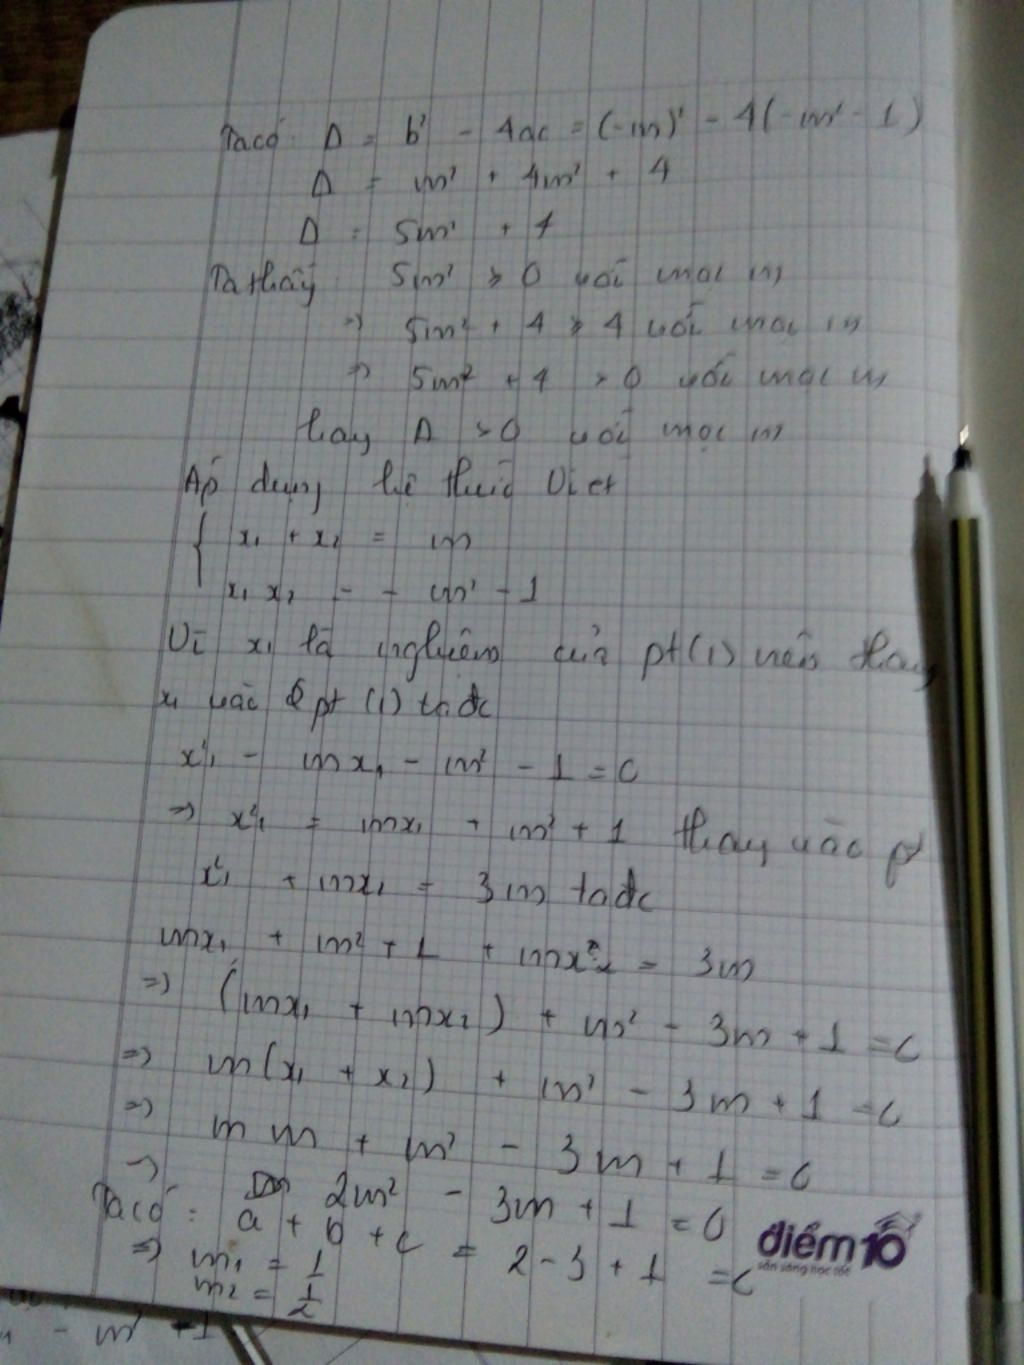 Ta có: Δ = b² - 4ac = (-m)² - 4(-m² - 1)
Δ = m² + 4m² + 4
Δ = 5m² + 4
Ta thấy 5m² ≥ 0 với mọi m
=> 5m² + 4 ≥ 4 với mọi m
=> 5m² + 4 > 0 với mọi m
hay Δ > 0 với mọi m
Áp dụng hệ thức Viet
{ x₁ + x₂ = m
x₁ x₂ = - m² - 1
Vì x₁ là nghiệm của pt(1) nên thay
x₁ vào pt (1) ta đc
x²₁ - mx₁ - m² - 1 = 0
=> x²₁ = mx₁ + m² + 1 thay vào pt
x²₁ + mx₂ = 3m ta đc
mx₁ + m² + 1 + mx₂ = 3m
=> (mx₁ + mx₂) + m² - 3m + 1 = 0
=> m(x₁ + x₂) + m² - 3m + 1 = 0
=> m m + m² - 3m + 1 = 0
=> 2m² - 3m + 1 = 0
Ta có: a + b + c = 2 - 3 + 1 = 0
=> m₁ = 1
m₂ = 1/2
điểm10
sẵn sàng học tốt
- m² + 1